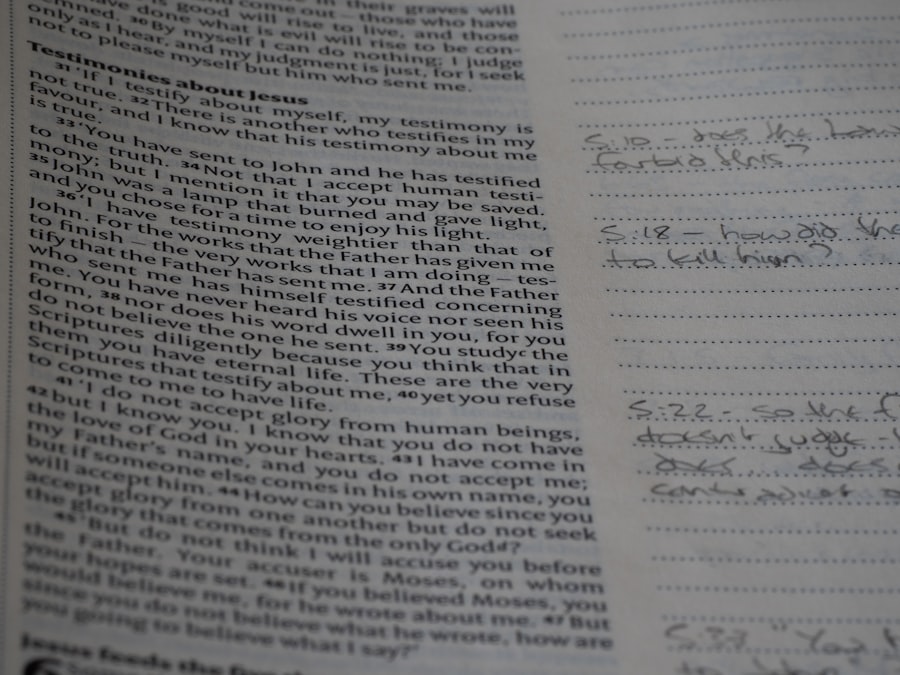 in their graves will
come out – those who have
is good will rise to live, and those
have done what is evil will rise to be con-
demned. 30 By myself I can do nothing; I judge
only as I hear, and my judgment is just, for I seek
not to please myself but him who sent me.
Testimonies about Jesus
31 ‘If I testify about myself, my testimony is
not true. 32 There is another who testifies in my
favour, and I know that his testimony about me
is true.
33 ‘You have sent to John and he has testified
to the truth. 34 Not that I accept human testi-
mony; but I mention it that you may be saved.
35 John was a lamp that burned and gave light,
and you chose for a time to enjoy his light.
36 ‘I have testimony weightier than that of
John. For the works that the Father has given me
to finish – the very works that I am doing – tes-
tify that the Father has sent me. 37 And the Father
who sent me has himself testified concerning
me. You have never heard his voice nor seen his
form, 38 nor does his word dwell in you, for you
do not believe the one he sent. 39 You study c the
Scriptures diligently because you think that in
them you have eternal life. These are the very
Scriptures that testify about me, 40 yet you refuse
to come to me to have life.
41 ‘I do not accept glory from human beings,
42 but I know you. I know that you do not have
the love of God in your hearts. 43 I have come in
my Father’s name, and you do not accept me;
but if someone else comes in his own name, you
will accept him. 44 How can you believe since you
accept glory from one another but do not seek
the glory that comes from the only God d?
45 ‘But do not think I will accuse you before
the Father. Your accuser is Moses, on whom
your hopes are set. 46 If you believed Moses, you
would believe me, for he wrote about me. 47 But
since you do not believe what he wrote, how are
you going to believe what I say?’
Jesus feeds the
6
5:10 – does the
forbid this?
5:18 – how did the
to kill him?
5:22 – so the
doesn't judge –
does does
contradict
5:33 "You
to John"